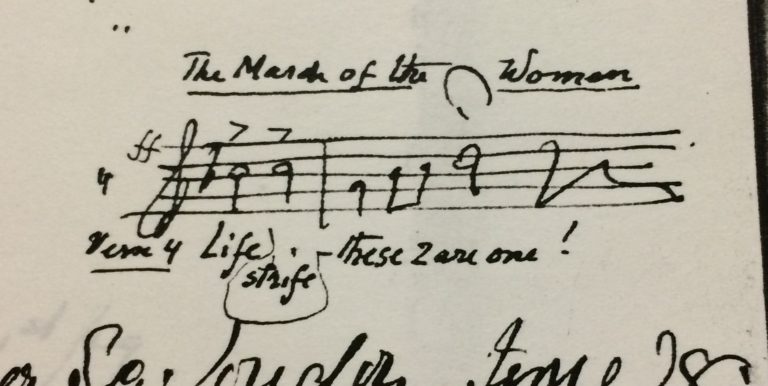 The March of the Women
ff
4
Verse 4 Life, strife - these 2 are one!
London